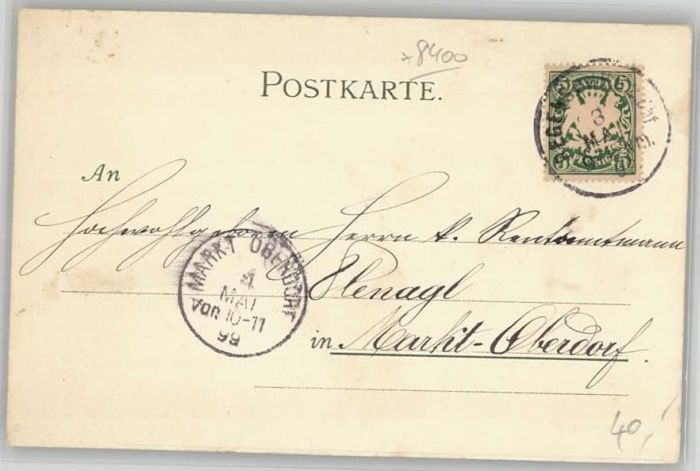 *8400
POSTKARTE.
5 5
BAYERN
3
MAI
5 5
An
Hochwohlgeboren Herrn k. Rentamtmann
MARKT OBERDORF
4
MAI
Vor 10-11
99
in Markt-Oberdorf.
40,-